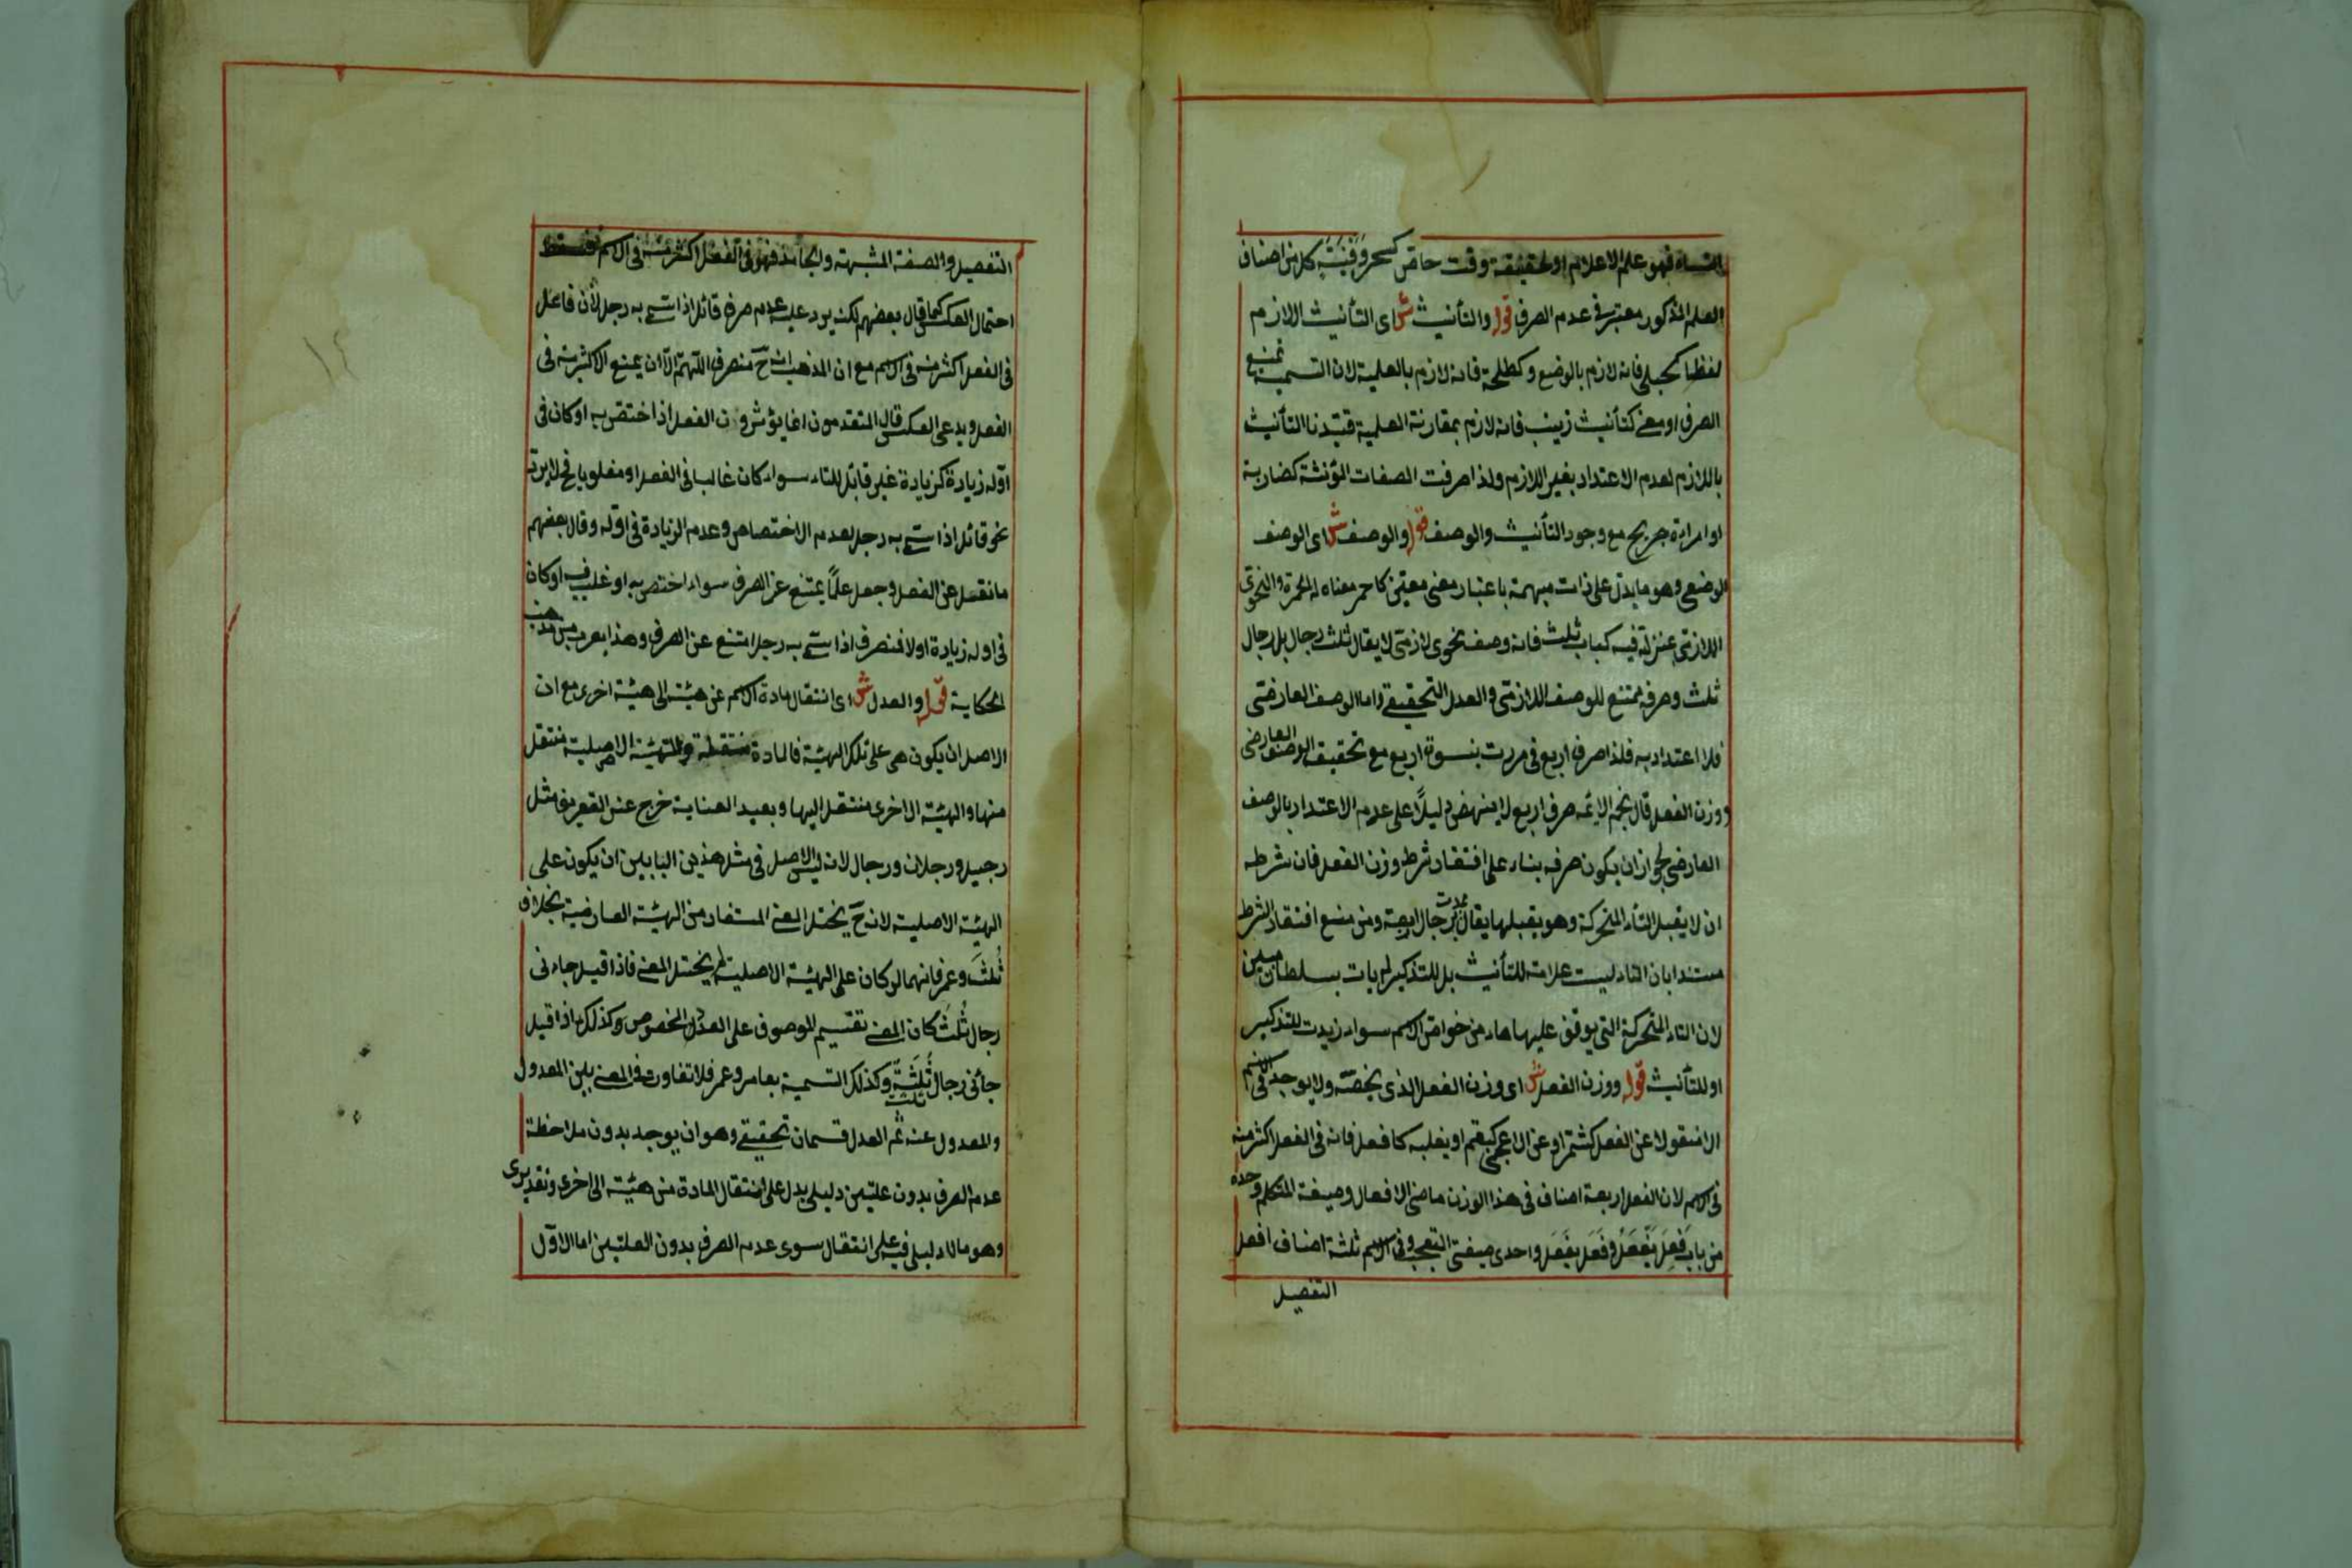 الشاه فهو علم الاعلام او لحقيقة وقت خاص كسحر وفينة كل من اصناف
العلم المذكور معتبر فى عدم الصرف قوله والتأنيث ش اى التأنيث اللازم
لفظا كحبلى فانه لازم بالوضع وكطلحة فانه لازم بالعلمية لان التسمية تمنع
الصرف او معنى كتأنيث زينب فانه لازم بمقارنة العلمية قيّدنا التأنيث
باللازم لعدم الاعتداد بغير اللازم ولذا صرفت الصفات المؤنثة كضاربة
او امراءة جريح مع وجود التأنيث والوصف قوله والوصف ش اى الوصف
الوضعى وهو ما يدل على ذات مبهمة باعتبار معنى معيّن كاحمر معناه له الحمرة والنحوى
اللازمى بمنزلته فيه كباب ثلث فانه وصف نحوى لازمى لا يقال ثلث رجال بل رجال
ثلث وصرفه ممتنع للوصف اللازمى والعدل التحقيقى واما الوصف العارضى
فلا اعتداد به فلذا صرف اربع فى مررت بنسوة اربع مع تحقيق الوصف العارضى
ووزن الفعل قال نجم الائمه صرف اربع لا ينهض دليلاً على عدم الاعتداد بالوصف
العارضى لجواز ان يكون صرفه بناء على افتقاد شرط وزن الفعل فان شرطه
ان لا يقبل التاء المتحركة وهو يقبلها يقال مررت برجال اربعة ومن منع افتقاد الشرط
مستندا بان التاء ليست علامة للتأنيث بل للتذكير لم يات بسلطان مبين
لان التاء المتحركة التى يوقف عليها هاء من خواص الاسم سواء زيدت للتذكير
او للتأنيث قوله ووزن الفعل ش اى وزن الفعل الذى يخصّه ولا يوجد فى الاسم
الا منقولا عن الفعل كشمّر او عن الاعجمى كبقّم او يغلبه كافعل فانه فى الفعل اكثر منه
فى الاسم لان الفعل اربعة اصناف فى هذا الوزن ماضى الافعال وصيغة المتكلم وحده
من باب فَعِلَ يَفْعَلُ وفَعَلَ يَفْعَلُ واحدى صيغتى التعجب وفى الاسم ثلثة اصناف افعل
التفضيل
التفضيل والصفة المشبهة والجامد فهو فى الفعل اكثر منه فى الاسم
احتمال العكس كما قال بعضهم لكن يرد عليه عدم صرف قائل اذا سمّى به رجل لان فاعل
فى الفعل اكثر منه فى الاسم مع ان المذهب انه ح منصرف اللّهمّ الّا ان يمنع الاكثرية فى
الفعل ويدعى العكس قال المتقدمون انما يؤثر وزن الفعل اذا اختص به او كان فى
اوّله زيادة كزيادة غير قابل للتاء سواء كان غالبا فى الفعل او مغلوبا فح لا يرد
نحو قائل اذا سمّى به رجل لعدم الاختصاص وعدم الزيادة فى اوّله وقال بعضهم
ما نقل عن الفعل وجعل علمًا يمتنع عن الصرف سواء اختص به او غلب فيه او كان
فى اوله زيادة او لا فنصرف اذا سمّى به رجل امتنع عن الصرف وهذا بعرب من مذهب
الحكاية قوله والعدل ش اى انتقال مادة الاسم عن هيئة الى هيئة اخرى مع ان
الاصل ان يكون هى على تلك الهيئة فالمادة منتقلة والهيئة الاصلية منتقل
منها والهيئة الاخرى منتقل اليها وبعيد العناية خرج عن التعريف مثل
رجيل ورجلان ورجال لانه ليس الاصل فى مثل هذين البابين ان يكون على
الهيئة الاصلية لانه ح يختل المعنى المستفاد من الهيئة العارضية بخلاف
ثُلثَ وعمر فانهما لو كان على الهيئة الاصلية لم يختل المعنى فاذا قيل جاءنى
رجال ثُلثُ كان المعنى تقسيم الموصوف على العدد المخصوص وكذلك اذا قيل
جائنى رجال ثُلثَةٌ ثلثة وكذلك التسمية بعامر وعمر فلا تفاوت فى المعنى بين المعدول
والمعدول عنه ثم العدل قسمان تحقيقى وهو ان يوجد بدون ملاحظة
عدم الصرف بدون علتين دليل يدل على انتقال المادة من هيئة الى اخرى وتقديرى
وهو ما لا دليل فيه على انتقال سوى عدم الصرف بدون العلتين اما الاوّل